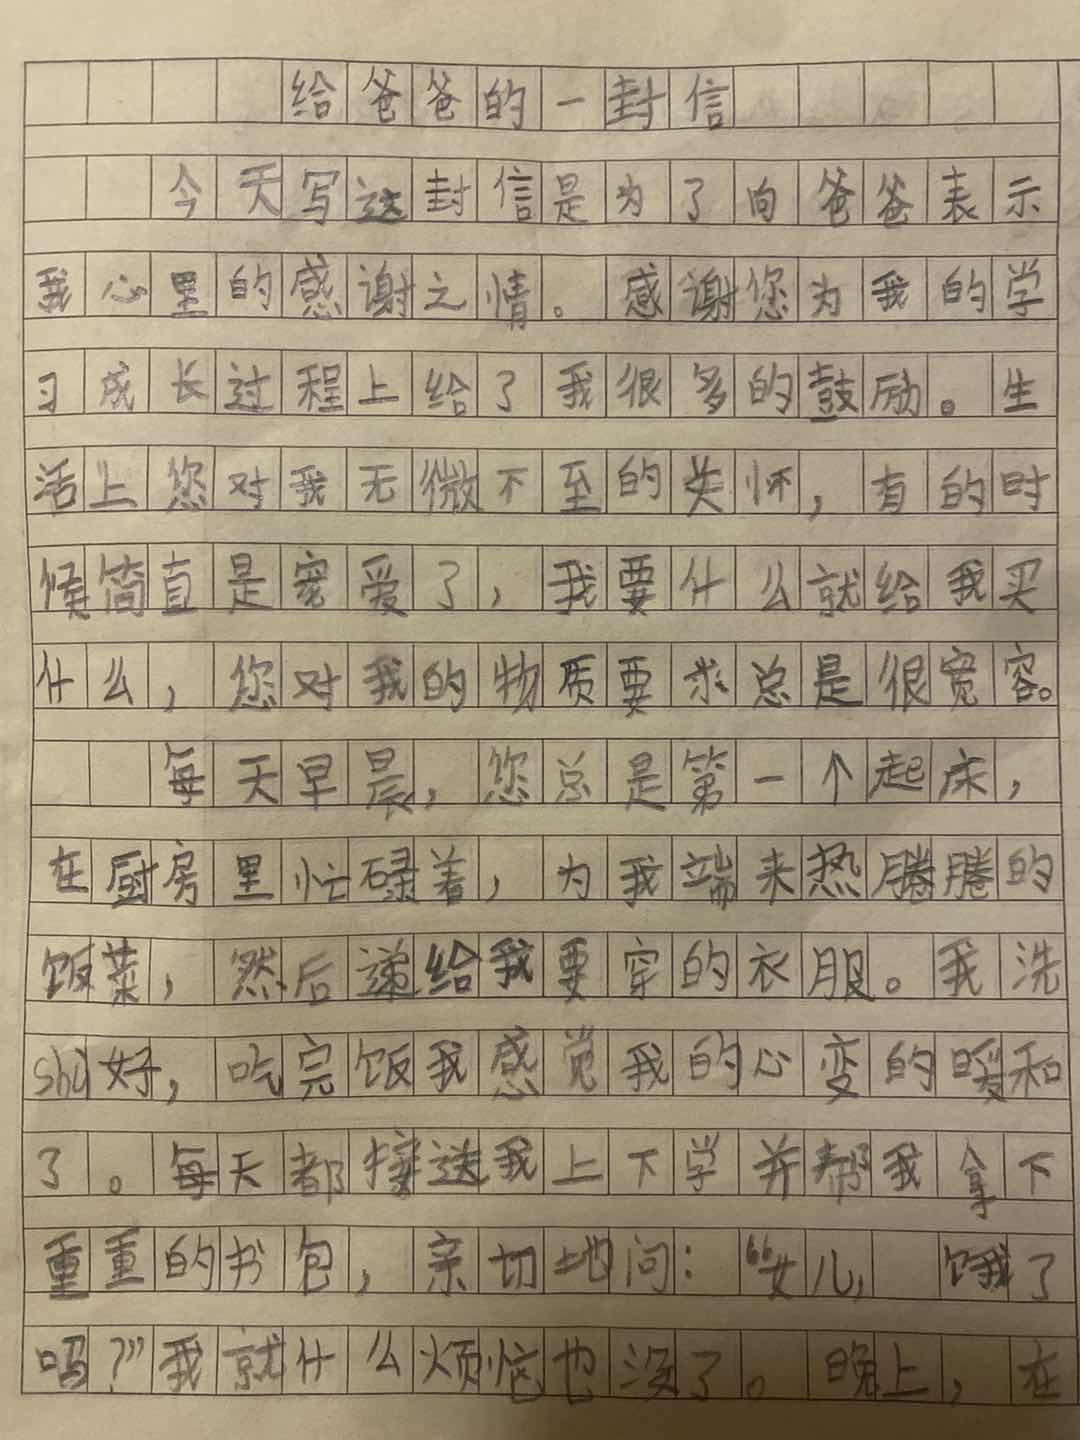 给爸爸的一封信
今天写这封信是为了向爸爸表示
我心里的感谢之情。感谢您为我的学
习成长过程上给了我很多的鼓励。生
活上您对我无微不至的关怀，有的时
候简直是宠爱了，我要什么就给我买
什么，您对我的物质要求总是很宽容。
每天早晨，您总是第一个起床，
在厨房里忙碌着，为我端来热腾腾的
饭菜，然后递给我要穿的衣服。我洗
shù好，吃完饭我感觉我的心变的暖和
了。每天都接送我上下学并帮我拿下
重重的书包，亲切地问：“女儿，饿了
吗？”我就什么烦恼也没了。晚上，在